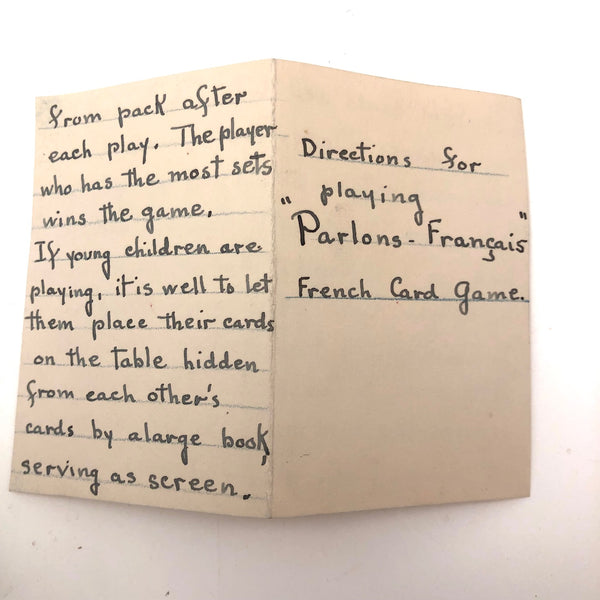 from pack after
each play. The player
who has the most sets
wins the game.
If young children are
playing, it is well to let
them place their cards
on the table hidden
from each other's
cards by a large book,
serving as screen.
Directions for
playing
"Parlons-Français"
French Card Game.